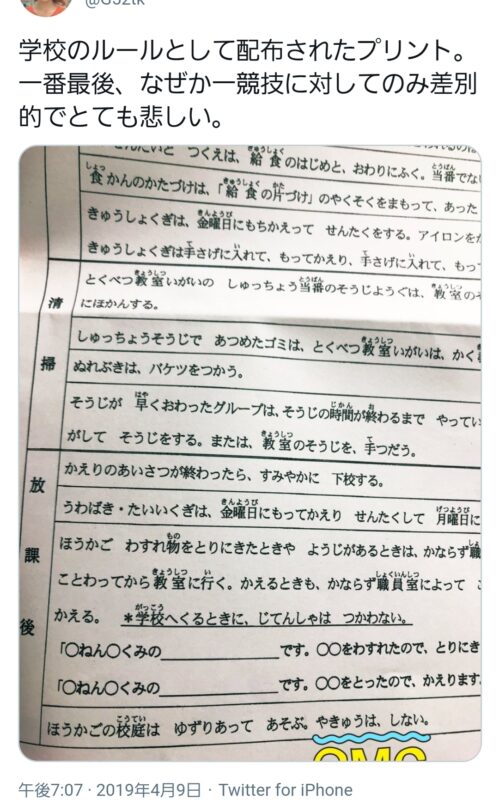 @G52tk
学校のルールとして配布されたプリント。
一番最後、なぜか一競技に対してのみ差別
的でとても悲しい。
つくえは、給食のはじめと、おわりにふく。当番でな
食かんのかたづけは、「給食の片づけ」のやくそくをまもって、あった
きゅうしょくぎは、金曜日にもちかえって せんたくをする。アイロンを
きゅうしょくぎは手さげに入れて、もってかえり、手さげに入れて、もっ
清掃
とくべつ教室いがいの しゅっちょう当番のそうじようぐは、教室の
にほかんする。
しゅっちょうそうじで あつめたゴミは、とくべつ教室いがいは、かく
ぬれぶきは、バケツをつかう。
そうじが 早くおわったグループは、そうじの時間が終わるまで やってい
がして そうじをする。または、教室のそうじを、手つだう。
放課後
かえりのあいさつが終わったら、すみやかに 下校する。
うわばき・たいいくぎは、金曜日にもってかえり せんたくして 月曜日に
ほうかご わすれ物をとりにきたときや ようじがあるときは、かならず職
ことわってから教室に行く。かえるときも、かならず職員室によって
かえる。 *学校へくるときに、じてんしゃは つかわない。
「○ねん○くみの＿＿＿＿＿＿です。○○をわすれたので、とりにき
「○ねん○くみの＿＿＿＿＿＿です。○○をとったので、かえります
ほうかごの校庭は ゆずりあって あそぶ。やきゅうは、しない。
OMG
午後7:07 · 2019年4月9日 · Twitter for iPhone